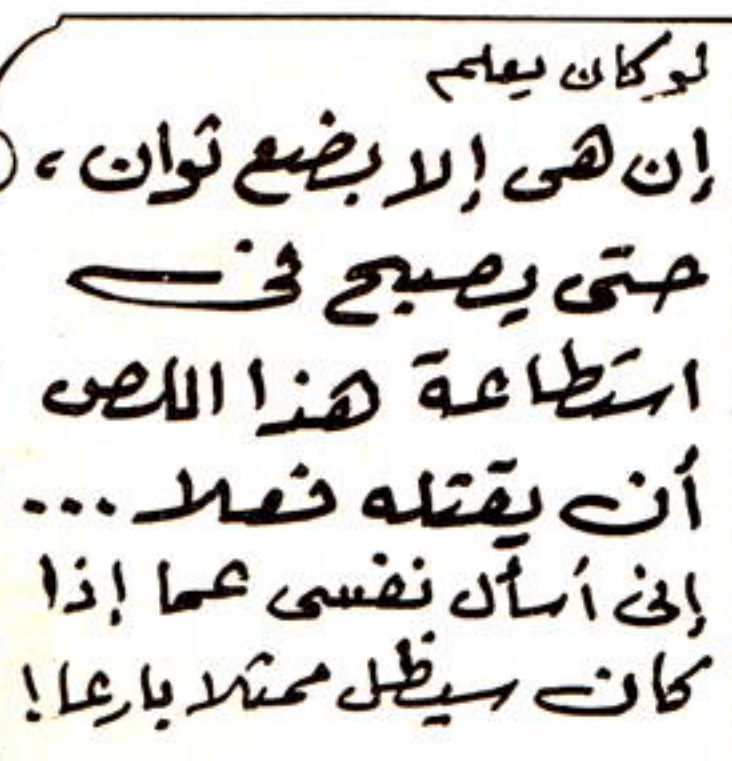 لو كان يعلم
إن هى إلا بضع ثوان ،
حتى يصبح فى
استطاعة هذا اللص
أن يقتله فعلا ...
إنى أسأل نفسى عما إذا
كان سيظل ممثلا بارعا !